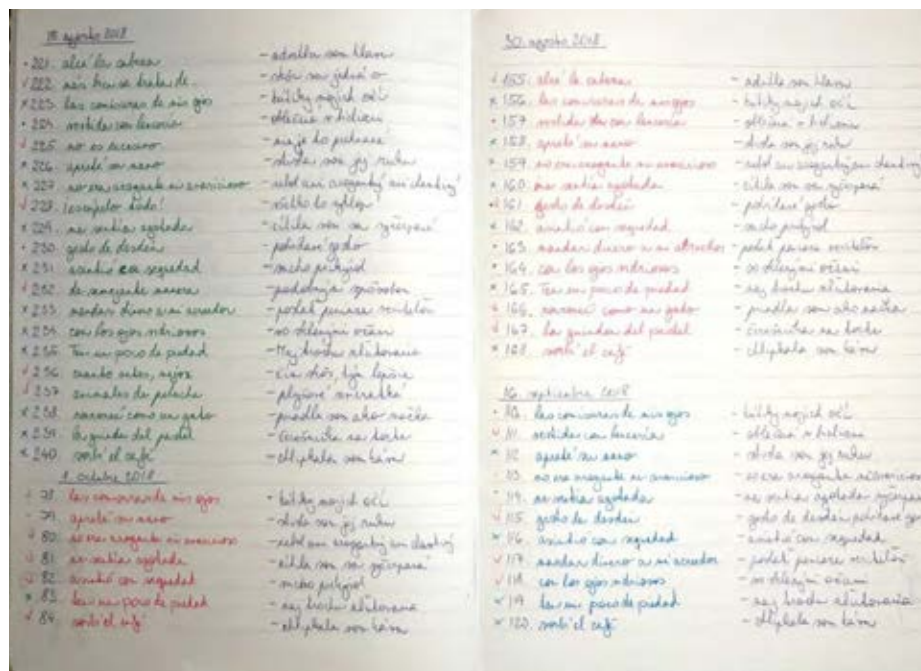 18. agosto 2018
221. alcé la cabeza
222. más bien se trata de - skôr sa jedná o
223. las comisuras de mis ojos - kútiky mojich očí
224. vestida con lencería - oblečená v
225. no es necesario
226. apreté su mano - stisla som jej ruku
227. no era arrogante ni avaricioso - nebol ani arogantný ani
228. ¡escúpelo todo! - všetko to vyklop!
229. me sentía agotada - cítila som sa vyčerpaná
230. gesto de desdén - gesto
231. asintió con seguridad - prikývol
232. de semejante manera - podobným spôsobom
233. mandar dinero a mi acreedor - poslať peniaze veriteľovi
234. con los ojos vidriosos - so sklenými očami
235. Ten un poco de piedad - Maj trochu zľutovania
236. cuanto antes, mejor - čím skôr, tým lepšie
237. animales de peluche - plyšové zvieratká
238. ronroneé como un gato - priadla som ako mačka
239. la guinda del pastel - čerešnička na torte
240. sorbí el café - chlipkala som
1. octubre 2018
78. las comisuras de mis ojos - kútiky mojich očí
79. apreté su mano - stisla som jej ruku
80. no era arrogante ni avaricioso - nebol ani arogantný ani
81. me sentía agotada - cítila som sa vyčerpaná
82. asintió con seguridad - prikývol
83. ten un poco de piedad - maj trochu zľutovania
84. sorbí el café - chlipkala som
30. agosto 2018
155. alcé la cabeza
156. las comisuras de mis ojos - kútiky mojich očí
157. vestida con lencería - oblečená v
158. apreté su mano - stisla som jej ruku
159. no era arrogante ni avaricioso - nebol ani arogantný ani
160. me sentía agotada - cítila som sa vyčerpaná
161. gesto de desdén - gesto
162. asintió con seguridad - prikývol
163. mandar dinero a mi acreedor - poslať peniaze veriteľovi
164. con los ojos vidriosos - so sklenými očami
165. Ten un poco de piedad - maj trochu zľutovania
166. ronroneé como un gato - priadla som ako mačka
167. la guinda del pastel - čerešnička na torte
168. sorbí el café - chlipkala som
16. septiembre 2018
110. las comisuras de mis ojos - kútiky mojich očí
111. vestida con lencería - oblečená v
112. apreté su mano - stisla som jej ruku
113. no era arrogante ni avaricioso - no era arrogante ni avaricioso
114. me sentía agotada - me sentía agotada
115. gesto de desdén - gesto de desdén
116. asintió con seguridad - asintió con seguridad
117. mandar dinero a mi acreedor - poslať peniaze veriteľovi
118. con los ojos vidriosos - so sklenými očami
119. ten un poco de piedad - maj trochu zľutovania
120. sorbí el café - chlipkala som